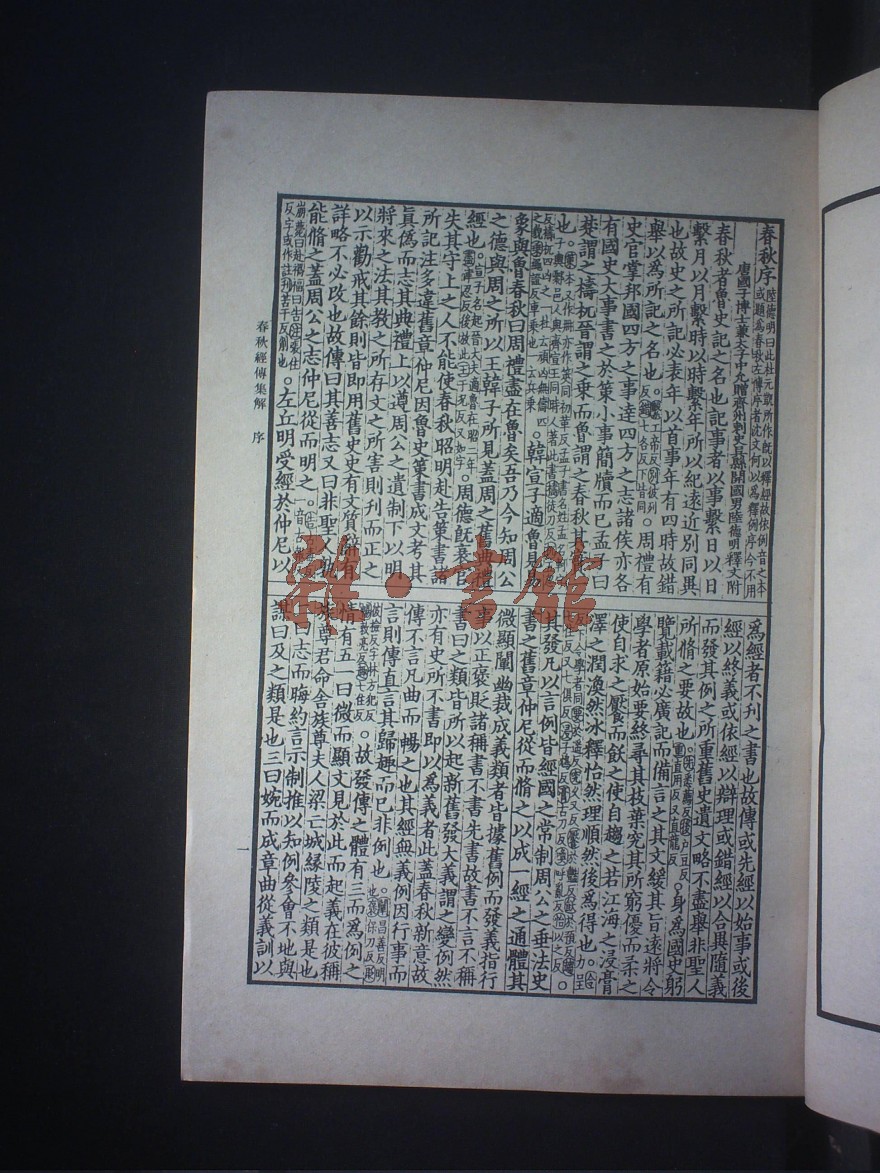 春秋序陸德明曰此杜元凱所作旣以釋經故依例音之本或題爲春秋左傳序者沈文何以爲釋例序今不用
唐國子博士兼太子中允贈齊州刺史吳縣開國男陸德明釋文附
春秋者魯史記之名也記事者以事繫日以日
繫月以月繫時以時繫年所以紀遠近別同異
也故史之所記必表年以首事年有四時故錯
舉以爲所記之名也。繫工帝反別彼列反錯七各反下皆同。周禮有
史官掌邦國四方之事達四方之志諸侯亦各
有國史大事書之於策小事簡牘而已孟子曰
楚謂之檮杌晉謂之乘而魯謂之春秋其
也。
韓宣子適魯見易
象與魯春秋曰周禮盡在魯矣吾乃今知周公
之德與周之所以王韓子所見蓋周之舊典禮
經也。周德旣衰官
失其守上之人不能使春秋昭明赴告策書諸
所記注多違舊章仲尼因魯史策書成文考其
眞僞而志其典禮上以遵周公之遺制下以明
將來之法其教之所存文之所害則刊而正之
以示勸戒其餘則皆即用舊史史有文質辭有
詳略不必改也故傳曰其善志又曰非聖人孰
能脩之蓋周公之志仲尼從而明之。
左丘明受經於仲尼以
爲經者不刊之書也故傳或先經以始事或後
經以終義或依經以辯理或錯經以合異隨義
而發其例之所重舊史遺文略不盡舉非聖人
所脩之要故也。身爲國史躬
覽載籍必廣記而備言之其文緩其旨遠將令
學者原始要終尋其枝葉究其所窮優而柔之
使自求之饜而飫之使自趨之若江海之浸膏
澤之潤渙然冰釋怡然理順然後爲得也。
其發凡以言例皆經國之常制周公之垂法史
書之舊章仲尼從而脩之以成一經之通體其
微顯闡幽裁成義類者皆據舊例而發義指行
事以正褒貶諸稱書不書先書故書不言不稱
書曰之類皆所以起新舊發大義謂之變例然
亦有史所不書即以爲義者此蓋春秋新意故
傳不言凡曲而暢之也其經無義例因行事而
言則傳直言其歸趣而已非例也。
故發傳之體有三而爲例之
情有五一曰微而顯文見於此而起義在彼稱
族尊君命舍族尊夫人梁亡城緣陵之類是也
二曰志而晦約言示制推以知例參會不地與
謀曰及之類是也三曰婉而成章曲從義訓以
春秋經傳集解 序
一
雜·書館